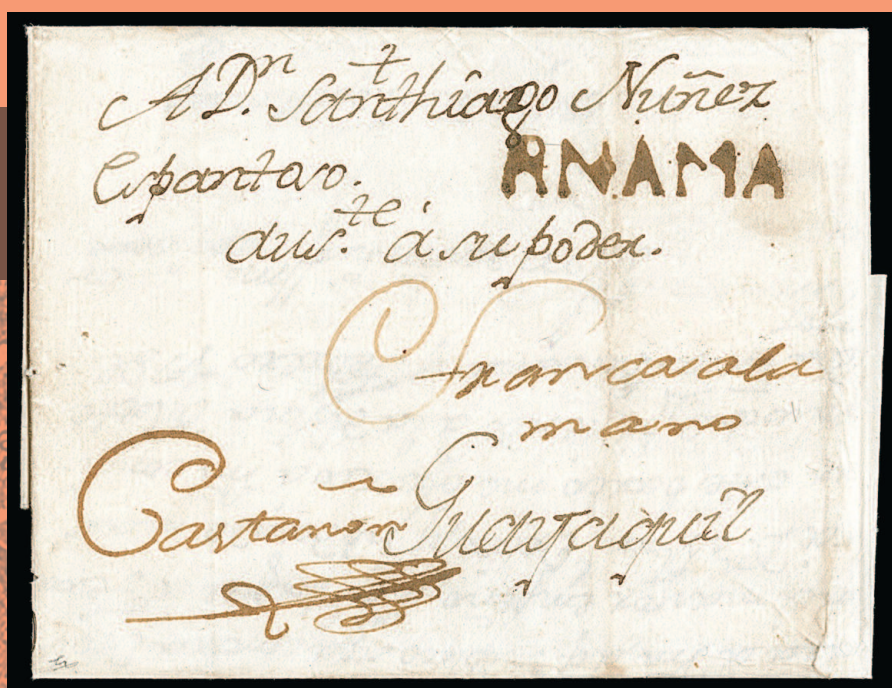 †
A Dn. Santhiago Nuñez
Espantoso.
ANAMA
Aus.te á su poder.
Franca a la
mano
Castañon
Guayaquil